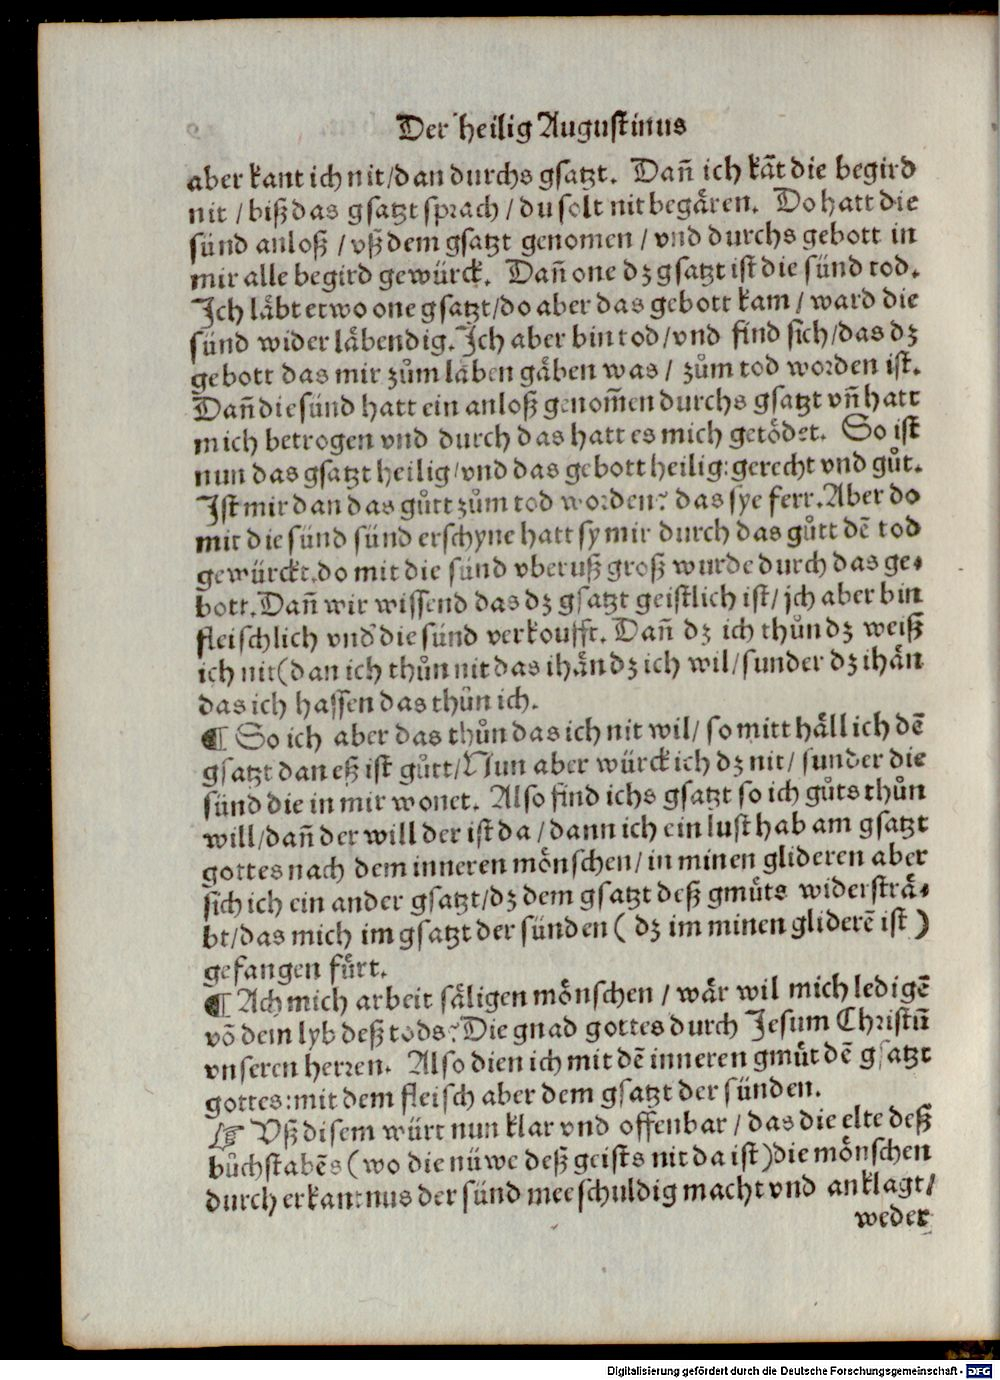 Der heilig Augustinus
aber kant ich nit/dan durchs gsatzt. Dañ ich kãt die begird
nit / biß das gsatzt sprach / du solt nit begären. Do hatt die
sünd anloß / vß dem gsatzt genomen / vnd durchs gebott in
mir alle begird gewürck. Dañ one dz gsatzt ist die sünd tod.
Ich läbt etwo one gsatzt/do aber das gebott kam / ward die
sünd wider läbendig. Ich aber bin tod/vnd find sich/das dz
gebott das mir zům läben gäben was / zům tod worden ist.
Dañ die sünd hatt ein anloß genom̃en durchs gsatzt vñ hatt
mich betrogen vnd durch das hatt es mich getödet. So ist
nun das gsatzt heilig/vnd das gebott heilig: gerecht vnd gůt.
Ist mir dan das gůtt zům tod worden? das sye ferr. Aber do
mit die sünd sünd erschyne hatt sy mir durch das gůtt dẽ tod
gewürckt, do mit die sünd vberuß groß wurde durch das ge-
bott. Dañ wir wissend das dz gsatzt geistlich ist/ jch aber bin
fleischlich vnd die sünd verkoufft. Dañ dz ich thůn dz weiß
ich nit (dan ich thůn nit das ihän dz ich wil/sunder dz ihän
das ich hassen das thůn ich.
¶ So ich aber das thůn das ich nit wil/ so mitt häll ich dẽ
gsatzt dan eß ist gůtt/Nun aber würck ich dz nit/ sunder die
sünd die in mir wonet. Also find ichs gsatzt so ich gůts thůn
will/dañ der will der ist da / dann ich ein lust hab am gsatzt
gottes nach dem inneren mönschen/ in minen glideren aber
sich ich ein ander gsatzt/dz dem gsatzt deß gmůts widersträ-
bt/das mich im gsatzt der sünden ( dz im minen gliderẽ ist )
gefangen fürt.
¶ Ach mich arbeit säligen mönschen / wär wil mich ledigẽ
võ dem lyb deß tods? Die gnad gottes durch Jesum Christũ
vnseren herren. Also dien ich mit dẽ inneren gmüt dẽ gsatzt
gottes: mit dem fleisch aber dem gsatzt der sünden.
☞ Vß disem würt nun klar vnd offenbar / das die elte deß
bůchstabẽs (wo die nüwe deß geists nit da ist) die mönschen
durch erkantnus der sünd mee schuldig macht vnd anklagt/
weder
Digitalisierung gefördert durch die Deutsche Forschungsgemeinschaft - DFG